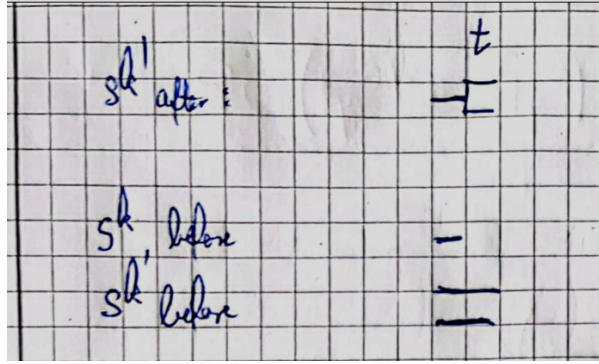 t
sk' after:
sk before
sk' before